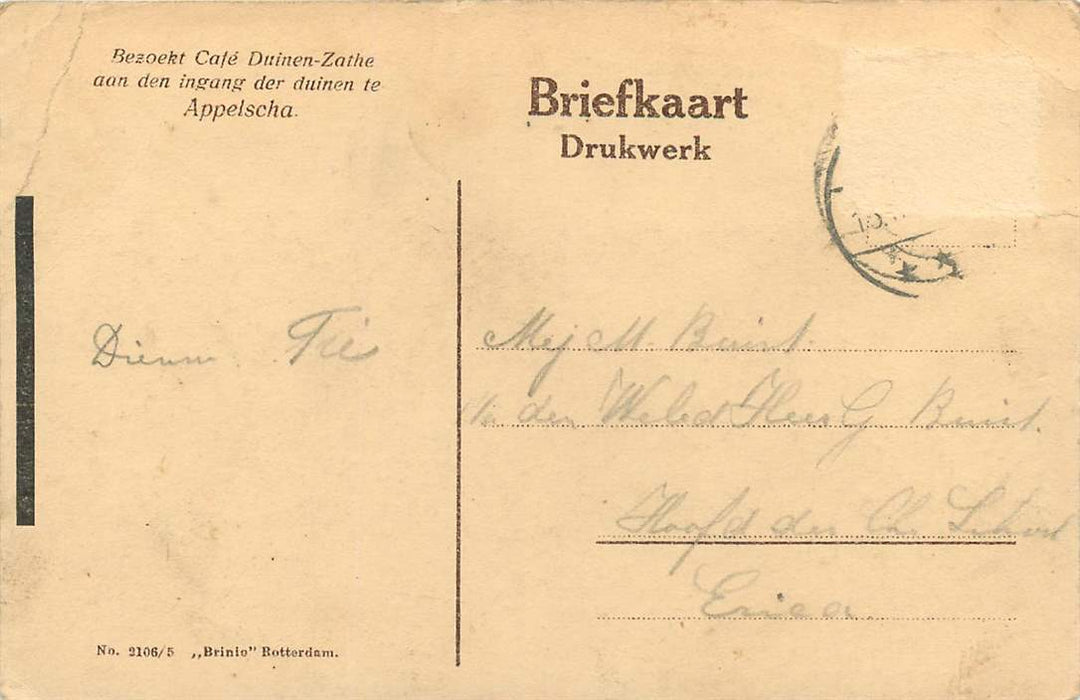 Bezoekt Café Duinen-Zathe
aan den ingang der duinen te
Appelscha.
Briefkaart
Drukwerk
Mej M. Buist.
den Heer G Buist.
Hoofd der Chr School
Erica.
No. 2106/5 „Brinio" Rotterdam.